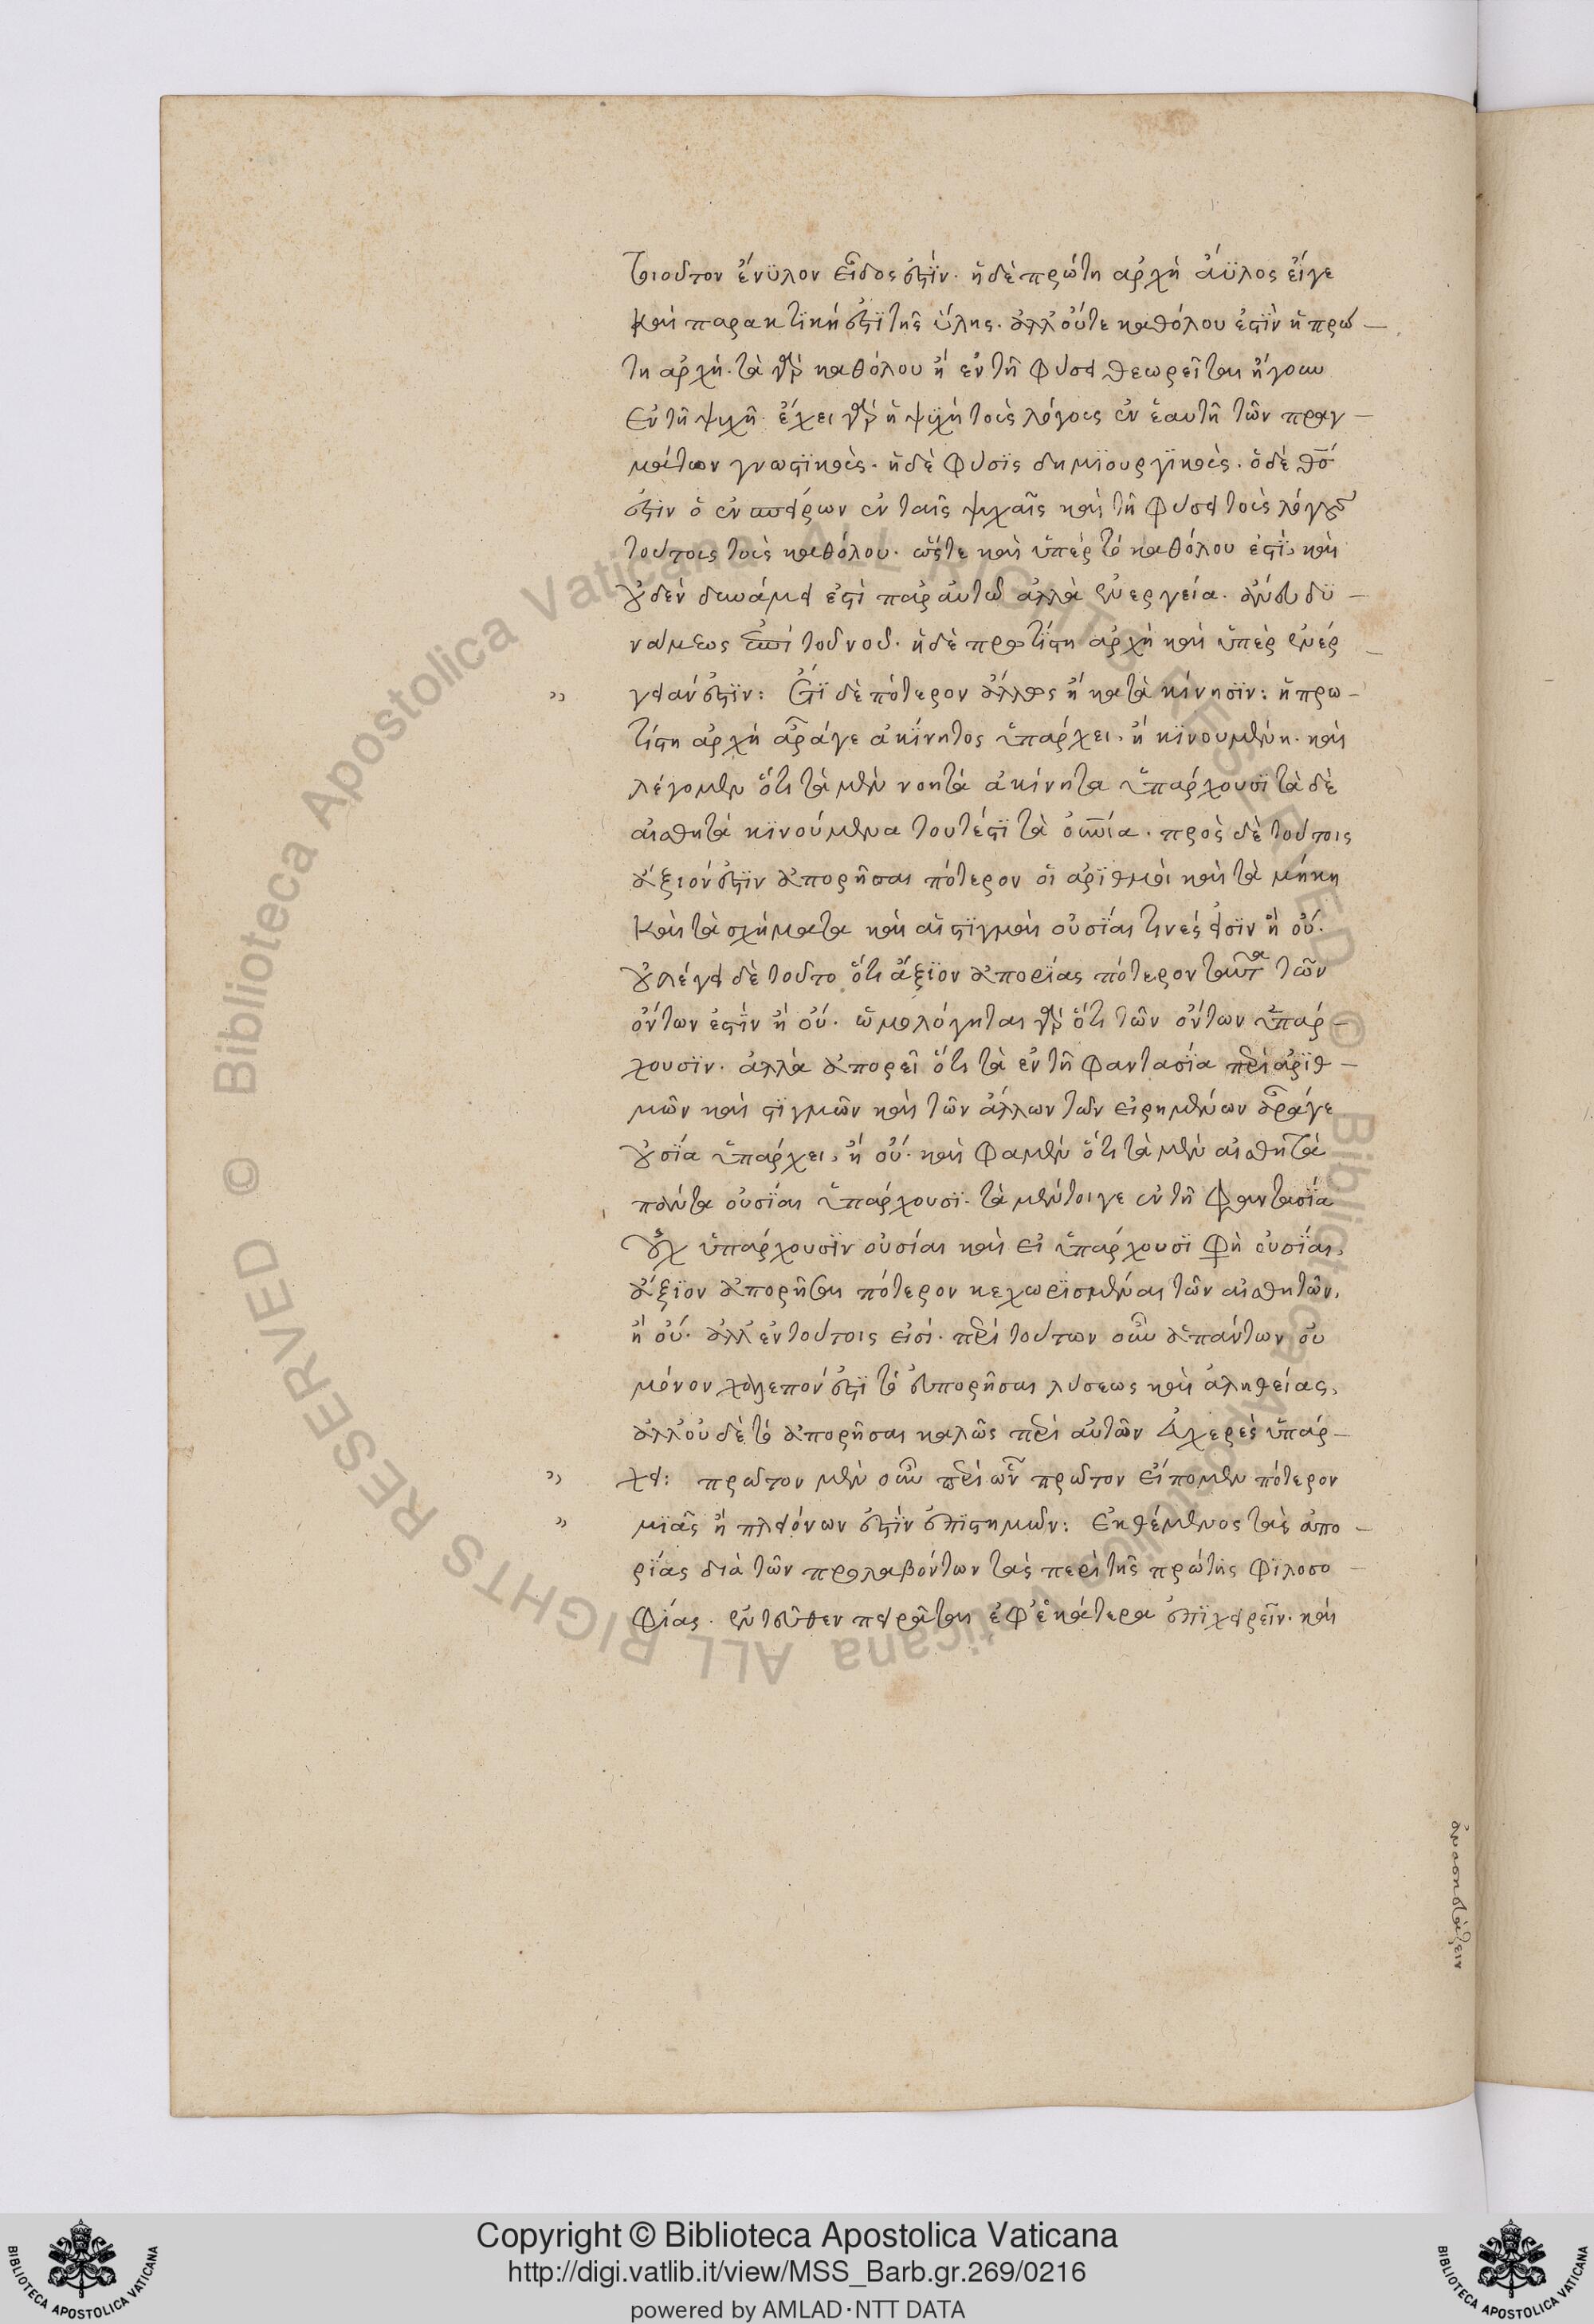 τοιοῦτον ἔνϋλον εἶδος ἐστΐν· ἡ δὲ πρώτη ἀρχὴ ἄϋλος εἴγε
καὶ παρακτϊκή ἐστϊ τῆς ὕλης. ἀλλ' οὔτε καθόλου ἐστὶν ἡ πρώ
τη ἀρχή. τὰ γὰρ καθόλου ἢ ἐν τῇ φύσει θεωρεῖται ἤγουν
ἐν τῇ ψυχῇ. ἔχει γὰρ ἡ ψυχὴ τοὺς λόγους ἐν ἑαυτῇ τῶν πραγ
μάτων γνωστϊκούς. ἡ δὲ φύσϊς δημϊουργϊκούς. ὁ δὲ θσ
ἐστϊν ὁ ἐνσπείρων ἐν ταῖς ψυχαῖς καὶ τῇ φύσει τοὺς λόγους
τούτους τοὺς καθόλου. ὥστε καὶ ὑπὲρ τὸ καθόλου ἐστὶ, καὶ
οὐδὲν δυνάμει ἐστὶ παρ' αὐτῷ ἀλλὰ ἐνεργείᾳ. ἄνευ δϋ
νάμεως ἐπὶ τοῦ νοῦ. ἡ δὲ πρωτίστη ἀρχὴ καὶ ὑπὲρ ἐνέρ
γειάν ἐστϊν: Ἔτϊ δὲ πότερον ἄλλως ἢ κατὰ κίνησϊν: ἡ πρω
τίστη ἀρχὴ ἆρά γε ἀκίνητος ὑπάρχει, ἢ κϊνουμένη. καὶ
λέγομεν ὅτι τὰ μὲν νοητὰ ἀκίνητα ὑπάρχουσϊ τὰ δὲ
αἰσθητὰ κϊνούμενα τουτέστϊ τὰ οὐράνια. πρὸς δὲ τούτοις
ἄξιόν ἐστϊν ἀπορῆσαι πότερον οἱ ἀρϊθμοὶ καὶ τὰ μήκη
καὶ τὰ σχήματα καὶ αἱ στϊγμαὶ οὐσϊαι τινές εἰσϊν ἢ οὔ.
οὐ λέγει δὲ τοῦτο ὅτι ἄξϊον ἀπορίας πότερον ταῦτα τῶν
ὄντων ἐστὶν ἢ οὔ. ὡμολόγηται γὰρ ὅτι τῶν ὄντων ὑπάρ
χουσϊν. ἀλλὰ ἀπορεῖ ὅτι τὰ ἐν τῇ φαντασϊα περὶ ἀρϊθ
μῶν καὶ στϊγμῶν καὶ τῶν ἄλλων τῶν εἰρημένων ἆρά γε
οὐσϊα ὑπάρχει, ἢ οὔ. καὶ φαμὲν ὅτι τὰ μὲν αἰσθητὰ
πάντα οὐσϊαι ὑπάρχουσϊ. τὰ μέντοιγε ἐν τῇ φαντασϊα
οὐχ ὑπάρχουσϊν οὐσίαι καὶ εἰ ὑπάρχουσϊ φὴ οὐσίαι,
ἄξϊον ἀπορῆσαι πότερον κεχωρϊσμέναι τῶν αἰσθητῶν,
ἢ οὔ. ἀλλ' ἐν τούτοις εἰσί. περὶ τούτων οὖν ἁπάντων οὐ
μόνον χαλεπόν ἐστϊ τὸ εὐπορῆσαι λύσεως καὶ ἀληθείας,
ἀλλ' οὐδὲ τὸ ἀπορῆσαι καλῶς περὶ αὐτῶν εὐχερὲς ὑπάρ
χει: πρῶτον μὲν οὖν περὶ ὧν πρῶτον εἴπομεν πότερον
μϊᾶς ἢ πλειόνων ἐστὶν ἐπϊστημῶν: ἐκθέμενος τὰς ἀπο
ρίας διὰ τῶν προλαβόντων τὰς περὶ τῆς πρώτης φϊλοσο
φίας. ἐντεῦθεν πειρᾶται ἐφ' ἑκάτερα ἐπϊχειρεῖν. καὶ
ἀνασκευάζειν
Copyright © Biblioteca Apostolica Vaticana
http://digi.vatlib.it/view/MSS_Barb.gr.269/0216
powered by AMLAD·NTT DATA
BIBLIOTECA APOSTOLICA VATICANA
BIBLIOTECA APOSTOLICA VATICANA
© Biblioteca Apostolica Vaticana ALL RIGHTS RESERVED
© Biblioteca Apostolica Vaticana ALL RIGHTS RESERVED